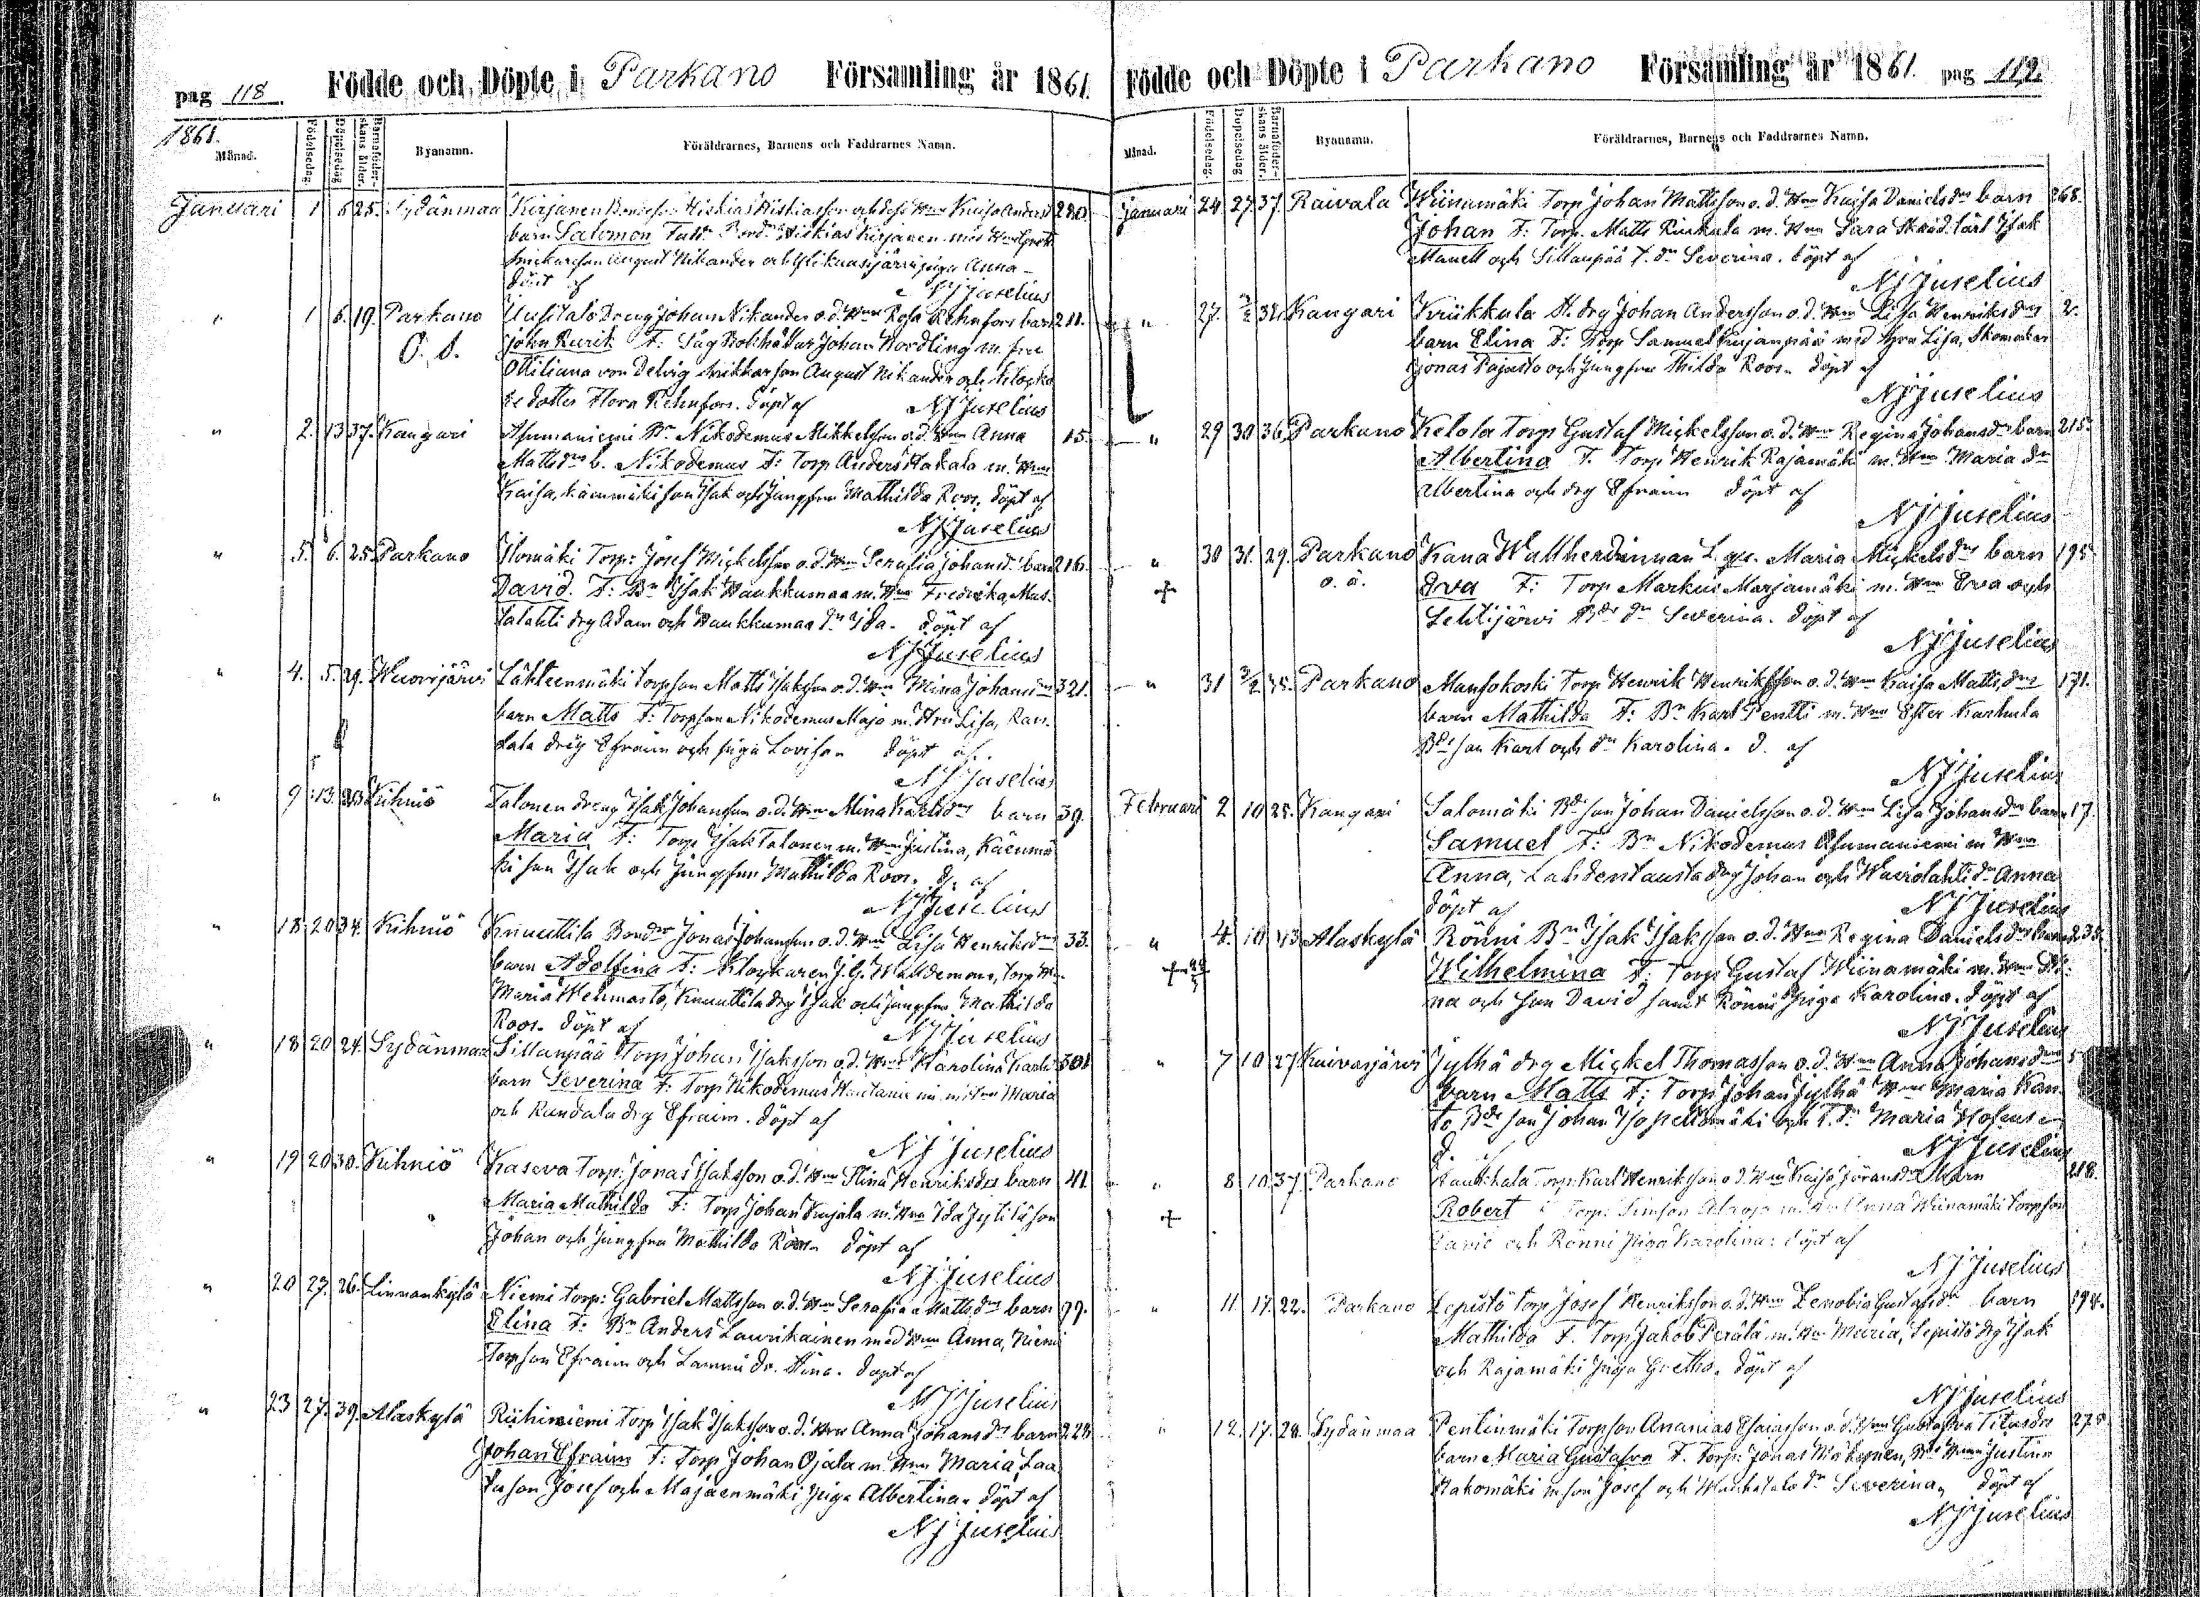 pag 118. Födde och Döpte i Parkano Församling år 1861.
1861.
Månad. Födelsedag. Döpelsedag Barnaföder-skans ålder. Byanamn. Föräldrarnes, Barnens och Faddrarnes Namn.
Januari 1 6 25. Sydänmaa Kirjanen Hiskias Hiskiasson och dess Hru Kaisa
barn Salomon Hiskias Kirjanen med
August Nikander och piga Anna
döpt af NJ Juselius
" 1 6. 19. Parkano Uusitalo Dreng Johan Nikander o.d. Hru Rosa Rehnfors barn 211.
O. S. John Rurik F: Såg Bokhållar Johan Nordling m. fru
Ottiliana von Delvig August Nikander och
dotter Flora Rehnfors. Döpt af NJ Juselius
" 2. 13 37. Kangari Ahumaniemi Bn Nikodemus Mikkelsson o.d. Hru Anna 15.
Mattsdr b. Nikodemus F: Torp Anders Hakala m. Hru
Kaisa, son Isak och Jungfru Mathilda Roos. Döpt af
NJ Juselius
" 5. 6. 25. Parkano Ilomäki Torp: Josef Mickelsson o.d. Hru Serafia Johansd. barn 216.
David. F: Bn Isak Haukkumaa m. Hru Fredrika, Mus-
talahti drg Adam och Haukkumaa dr Ida. döpt af
NJ Juselius
" 4. 5. 29. Wuorijärvi Lähteenmäki torpson Matts Isaksson o.d. Hru Mina Johansdr 321.
barn Matts F: Torpson Nikodemus Maja m. Hru Lisa, Ran-
dala dräg Efraim och piga Lovisa. döpt af.
NJ Juselius
" 9 13. 23 Kihniö Talonen dreng Isak Johansson o.d. Hru Mina Karlsdr barn 39.
Maria F: Torp Isak Talonen m. Hru Justina, Käenmä-
ki son Isak och Jungfru Mathilda Roos. D. af
NJ Juselius
" 18 20 34. Kihniö Knuuttila Bonder Jonas Johansson o.d. Hru Lisa Henriksdr 33.
barn Adolfina F: Klockaren J. G. Walldemars, Torp Hru
Maria Wehmasto, Knuuttila drg Isak och jungfru Mathilda
Roos. döpt af NJ Juselius
" 18 20 24. Sydänmaa Sillanpää Torp Johan Isaksson o.d. Hru Karolina Karlsd. 301
barn Severina F: Torp Nikodemus m. Hru Maria
och Randala drg Efraim. döpt af
NJ Juselius
" 19 20 30. Kihniö Kaseva Torp: Jonas Isaksson o.d. Hru Stina Henriksdr barn 41.
Maria Mathilda F: Torp Johan Kujala m. Hru Ida Jylilä son
Johan och Jungfru Mathilda Roos. döpt af
NJ Juselius
" 20 27. 26. Linnankylä Niemi torp: Gabriel Mattsson o.d. Hru Serafia Mattsdr barn 99.
Elina F: Bn Anders Laurikainen med Hru Anna, Niemi
Torpson Efraim och Lammi dr. Stina. döpt af
NJ Juselius
" 23 27. 39. Alaskylä Riihiniemi Torp Isak Isaksson o.d. Hru Anna Johansdr barn 228
Johan Efraim F: Torp Johan Ojala m. Hru Maria, Laa-
son Josef och Majaenmäki piga Albertina. döpt af
NJ Juselius
Födde och Döpte i Parkano Församling år 1861. pag 119.
Månad. Födelsedag. Döpelsedag Barnaföder-skans ålder. Byanamn. Föräldrarnes, Barnens och Faddrarnes Namn.
Januari 24 27 37. Raivala Wiinamäki Torp Johan Mattsson o.d. Hru Kaisa Danielsdr barn 268.
Johan F: Torp. Matts Rinkala m. Hru Sara Skräd. lärl Isak
Manell och Sillanpää T. dr Severina. döpt af
NJ Juselius
" 27. 3/2 32. Kangari Kriikkula H. drg Johan Andersson o.d. Hru Lisa Henriksdr 2.
barn Elina F: Torp Samuel Kirjanpää med Hru Lisa, Skomakar
Jonas Pajasto och Jungfru Thilda Roos. döpt af
NJ Juselius
" 29 30 36. Parkano Ketola Torp Gustaf Mickelsson o.d. Hru Regina Johansdr barn 215.
Albertina F. Torp Henrik Rajamäki m. Hru Maria dr
Albertina och drg Efraim döpt af
NJ Juselius
" 30 31. 29. Parkano Kana Wattherdinnan L. Maria Mickelsdr barn 195.
o. ä. Eva F: Torp Markus Marjamäki m. Hru Eva och
Lehtijärvi Bds dr Severina. döpt af
NJ Juselius
" 31 3/2 35. Parkano Mansokoski Torp Henrik Henriksson o.d. Hru Kaisa Mattsdr 171.
barn Mathilda F: Bn Karl Pentti m. Hru Ester Karhula
Bds son Karl och dr Karolina. d. af
NJ Juselius
Februari 2 10 25. Kangari Salomäki Bds son Johan Danielsson o.d. Hru Lisa Johansdr barn 17.
Samuel F: Bn Nikodemus Ahumaniemi m Hru
Anna, Lahdentausta drg Johan och dr Anna
döpt af NJ Juselius
" 4. 10 43. Alaskylä Rönni Bn Isak Isaksson o.d. Hru Regina Danielsdr barn 235.
Wilhelmina F: Torp Gustaf Wiinamäki m. Hru Sti-
na och son David samt Rönni Piga Karolina. döpt af
NJ Juselius
" 7 10 27 Kuivasjärvi Jylhä drg Mickel Thomasson o.d. Hru Anna Johansdr 5
barn Matts F: Torp Johan Jylhä Hru Maria Kan-
to Bds son Johan och T. dr Maria
d. NJ Juselius
" 8 10 37. Parkano Torp: Karl Henriksson o.d. Hru Kaisa Göransdr barn 218.
Robert F Torp: Simson m. Hru Anna Wiinamäki Torpson
David och Rönni Piga Karolina: döpt af
NJ Juselius
" 11 17. 22. Parkano Lepistö Torp Josef Henriksson o.d. Hru Zenobia Gustafsdr barn 194.
Mathilda F. Torp Jakob Perälä m. Hru Maria, Lepistö drg Isak
och Rajamäki Piga Gretha. döpt af
NJ Juselius
" 12. 17. 20. Sydänmaa Pentinmäki Torpson Ananias Esaiasson o.d. Hru Gustafva Titusdr 275
barn Maria Gustafva F. Torp: Jonas Hru Justina
Hakomäki son Josef och dr Severina, döpt af
NJ Juselius